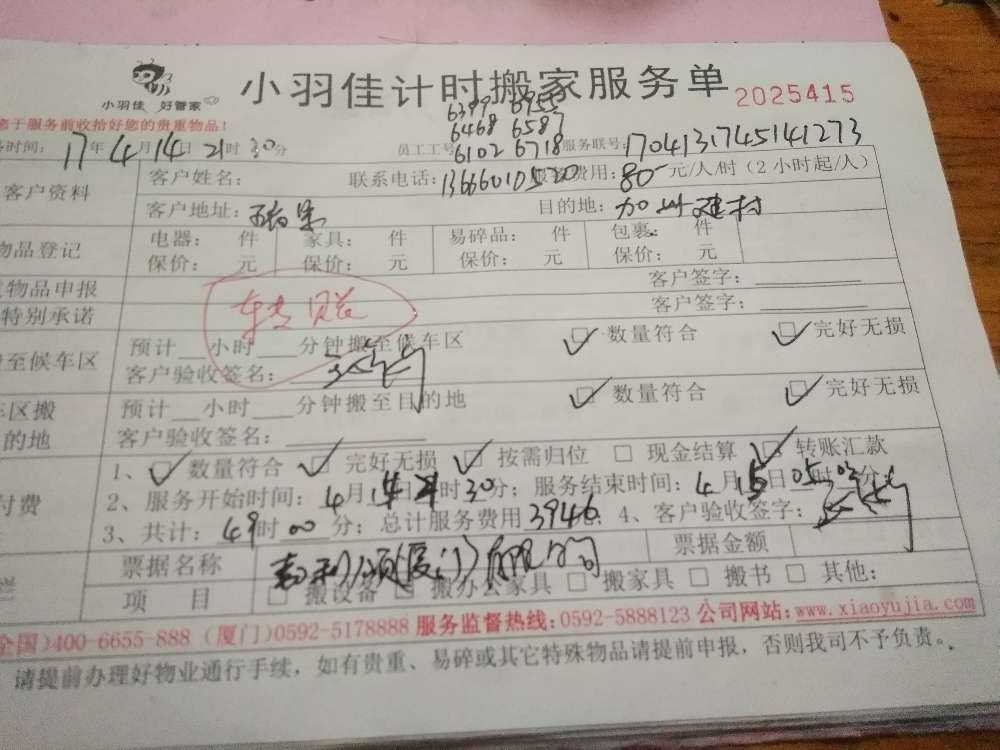 小羽佳计时搬家服务单
小羽佳 好管家
2025415
您于服务前收拾好您的贵重物品!
6399 6955
6468 6587
务时间: 17年4月14日21时30分 员工工号: 6102 6718 服务联号: 1704131745141273
客户资料 客户姓名: 联系电话: 费用: 80元/人/时 (2小时起/人)
客户地址: 目的地: 加州建材
物品登记 电器: 件 家具: 件 易碎品: 件 包裹: 件
保价: 元 保价: 元 保价: 元 保价: 元
物品申报 客户签字:
特别承诺 客户签字:
转账
至候车区 预计 小时 分钟搬至候车区 数量符合 完好无损
客户验收签名:
区搬 预计 小时 分钟搬至目的地 数量符合 完好无损
的地 客户验收签名:
1、 数量符合 完好无损 按需归位 现金结算 转账汇款
付费 2、服务开始时间: 4月14日21时30分; 服务结束时间: 4月15日05时03分
3、共计: 49时00分; 总计服务费用3946; 4、客户验收签字:
栏 票据名称 (厦门)有限公司 票据金额
项 目 搬设备 搬办公家具 搬家具 搬书 其他:
全国)400-6655-888 (厦门)0592-5178888 服务监督热线:0592-5888123 公司网站:www.xiaoyujia.com
请提前办理好物业通行手续,如有贵重、易碎或其它特殊物品请提前申报,否则我司不予负责。